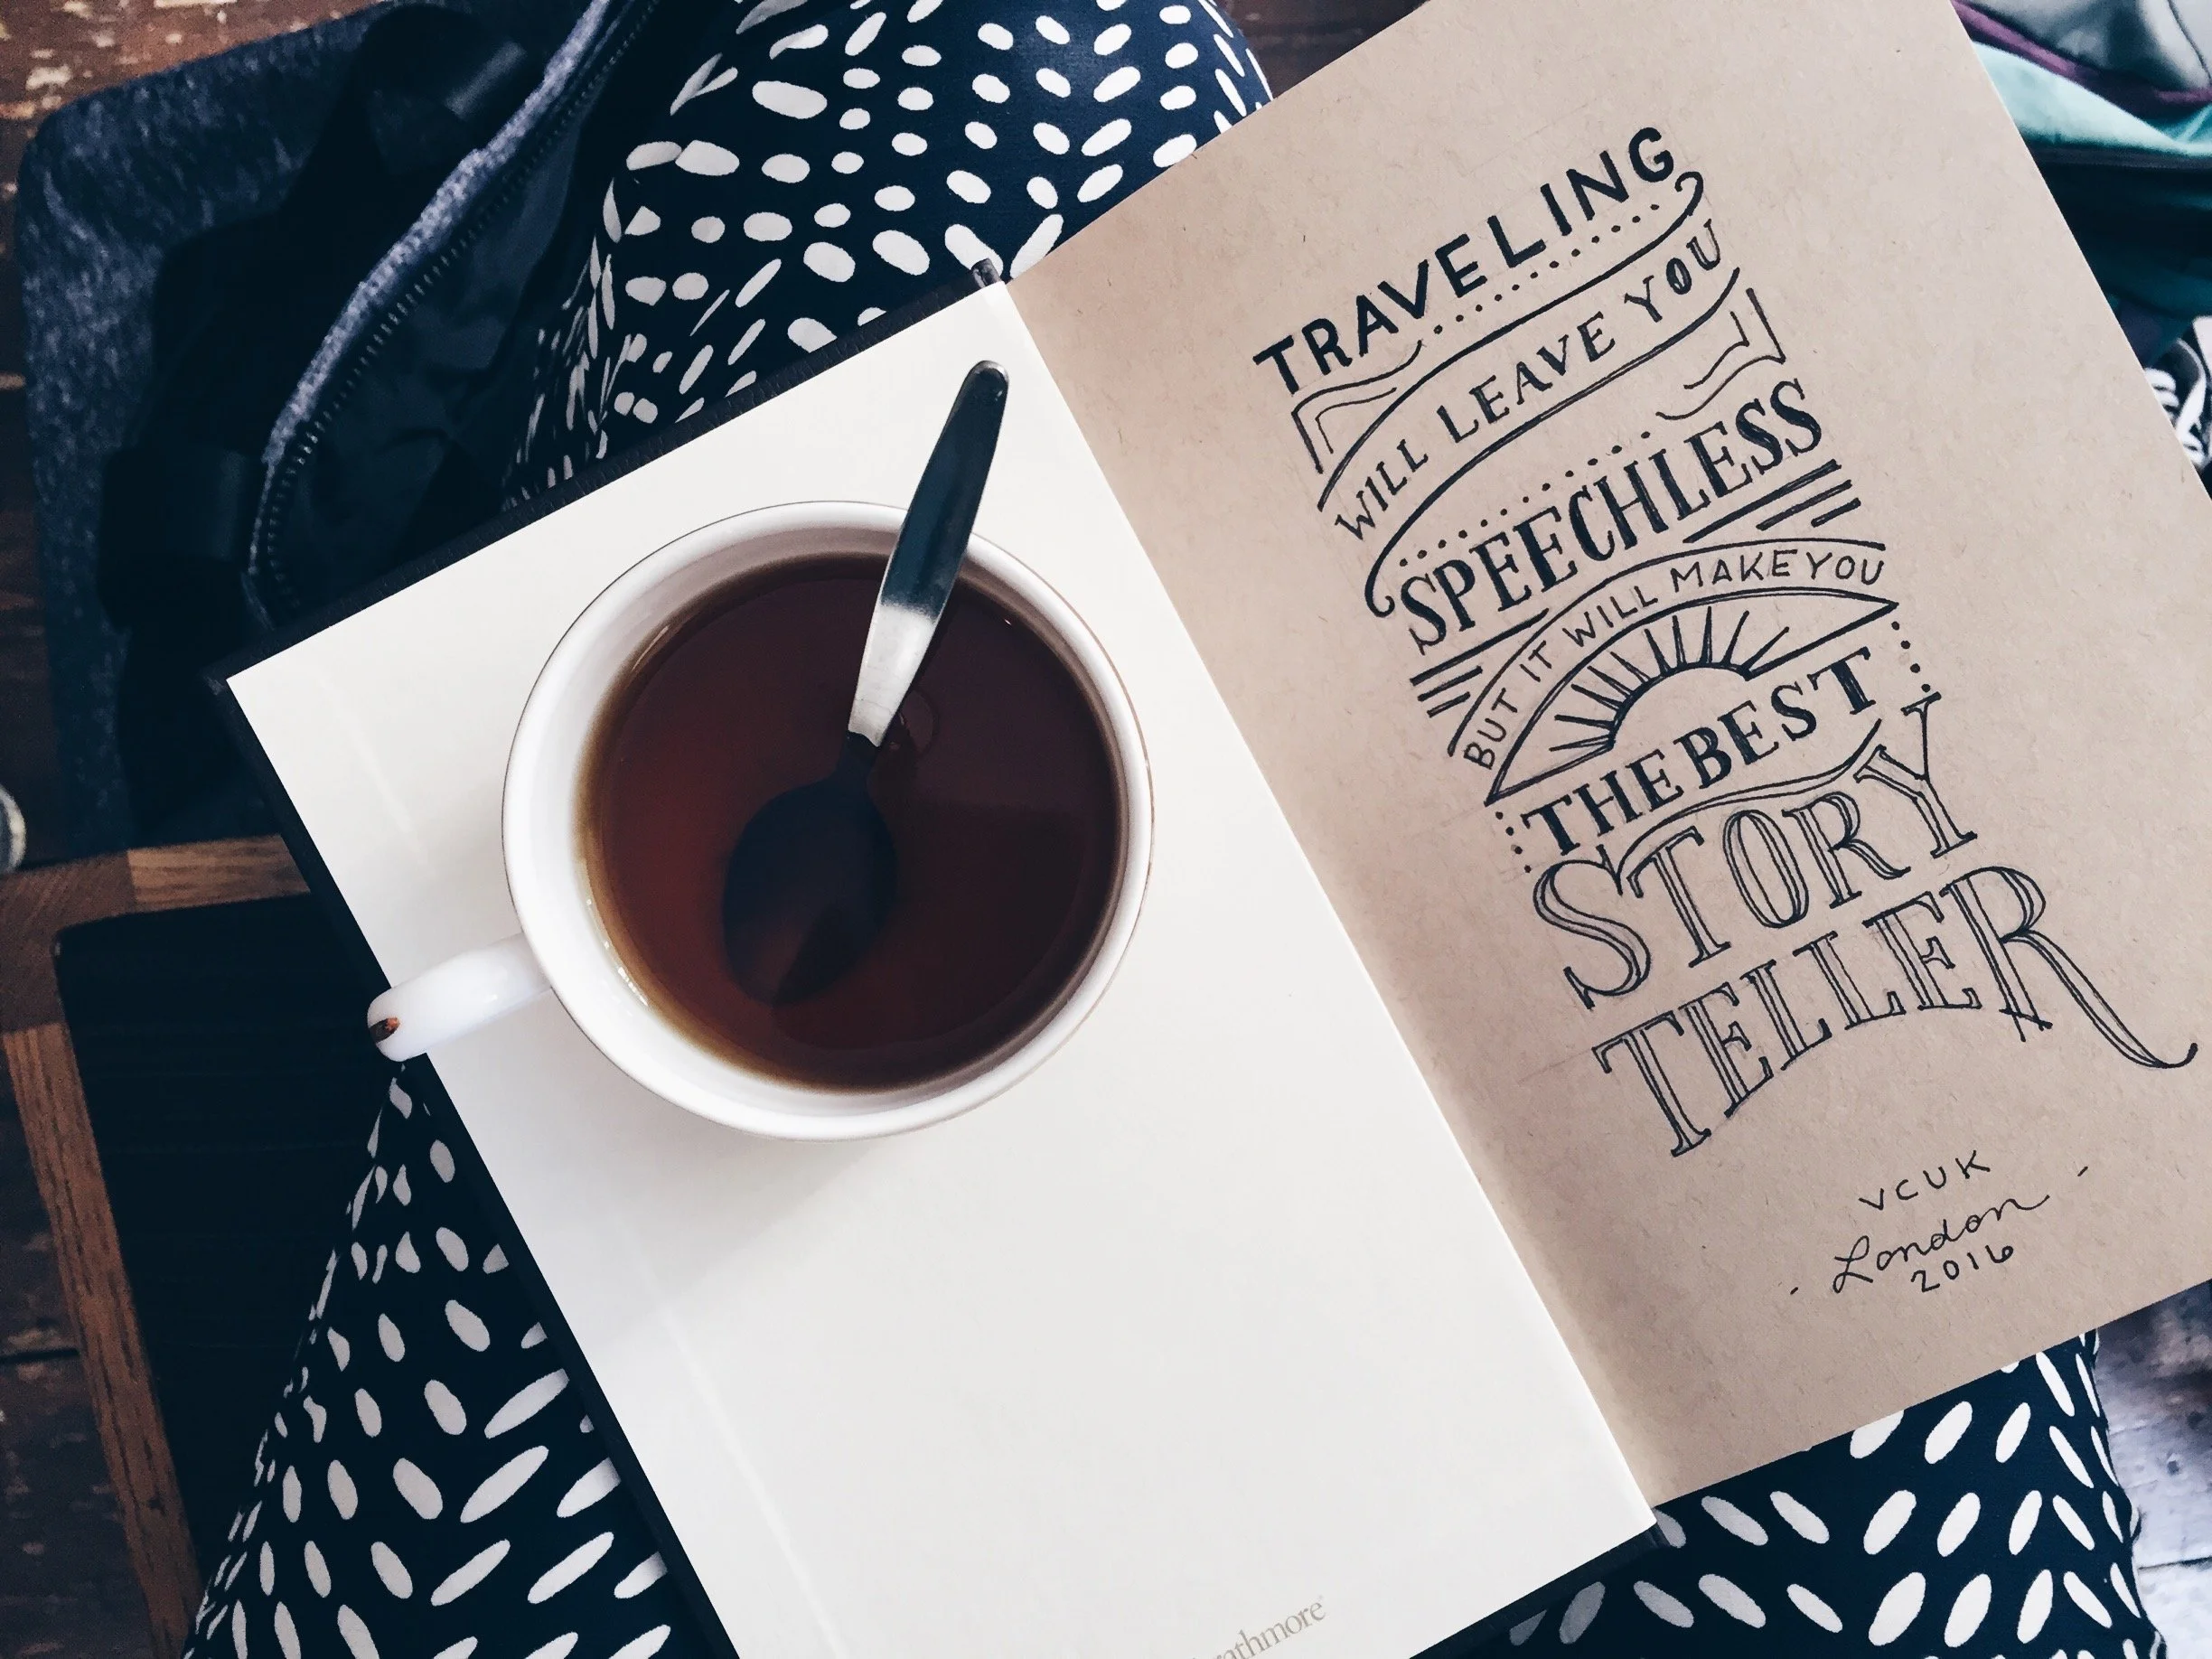 TRAVELING
WILL LEAVE YOU
SPEECHLESS
BUT IT WILL MAKE YOU
THE BEST
STORY
TELLER
VCUK
- London -
2016